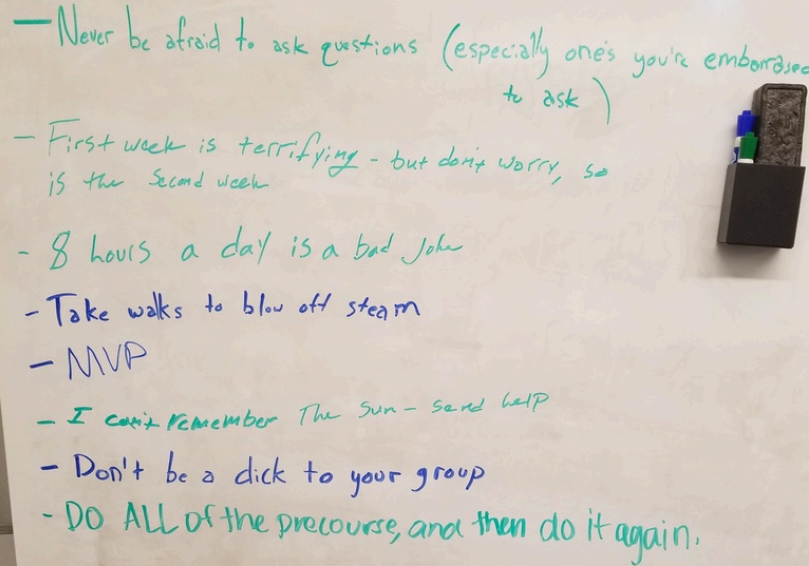 — Never be afraid to ask questions (especially one's you're embarrased
to ask)
- First week is terrifying - but don't worry, so
is the second week
- 8 hours a day is a bad joke
- Take walks to blow off steam
- MVP
- I can't remember The sun - send help
- Don't be a dick to your group
- DO ALL of the precourse, and then do it again.